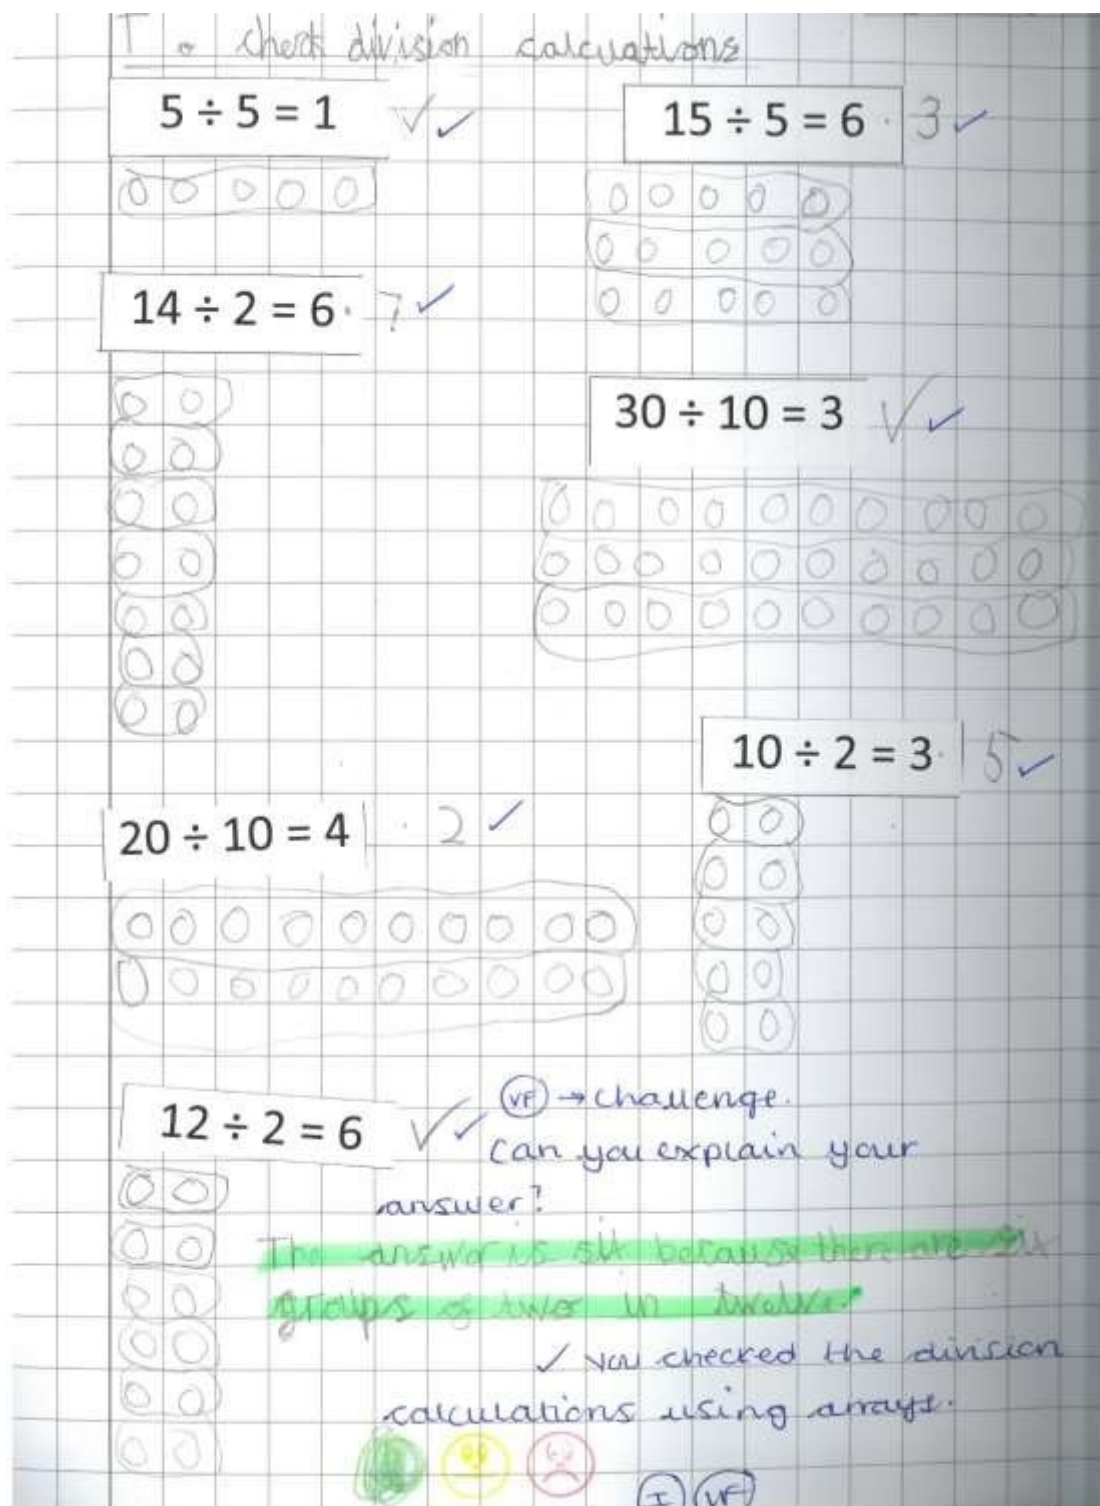 T . check division calculations
5 ÷ 5 = 1 ✓ ✓
15 ÷ 5 = 6 · 3 ✓
14 ÷ 2 = 6 · 7 ✓
30 ÷ 10 = 3 ✓ ✓
10 ÷ 2 = 3 · 5 ✓
20 ÷ 10 = 4 · 2 ✓
12 ÷ 2 = 6 ✓ ✓
VF → Challenge.
Can you explain your
answer?
The answer is six because there are six
groups of twos in twelve.
✓ You checked the division
calculations using arrays.
I VF